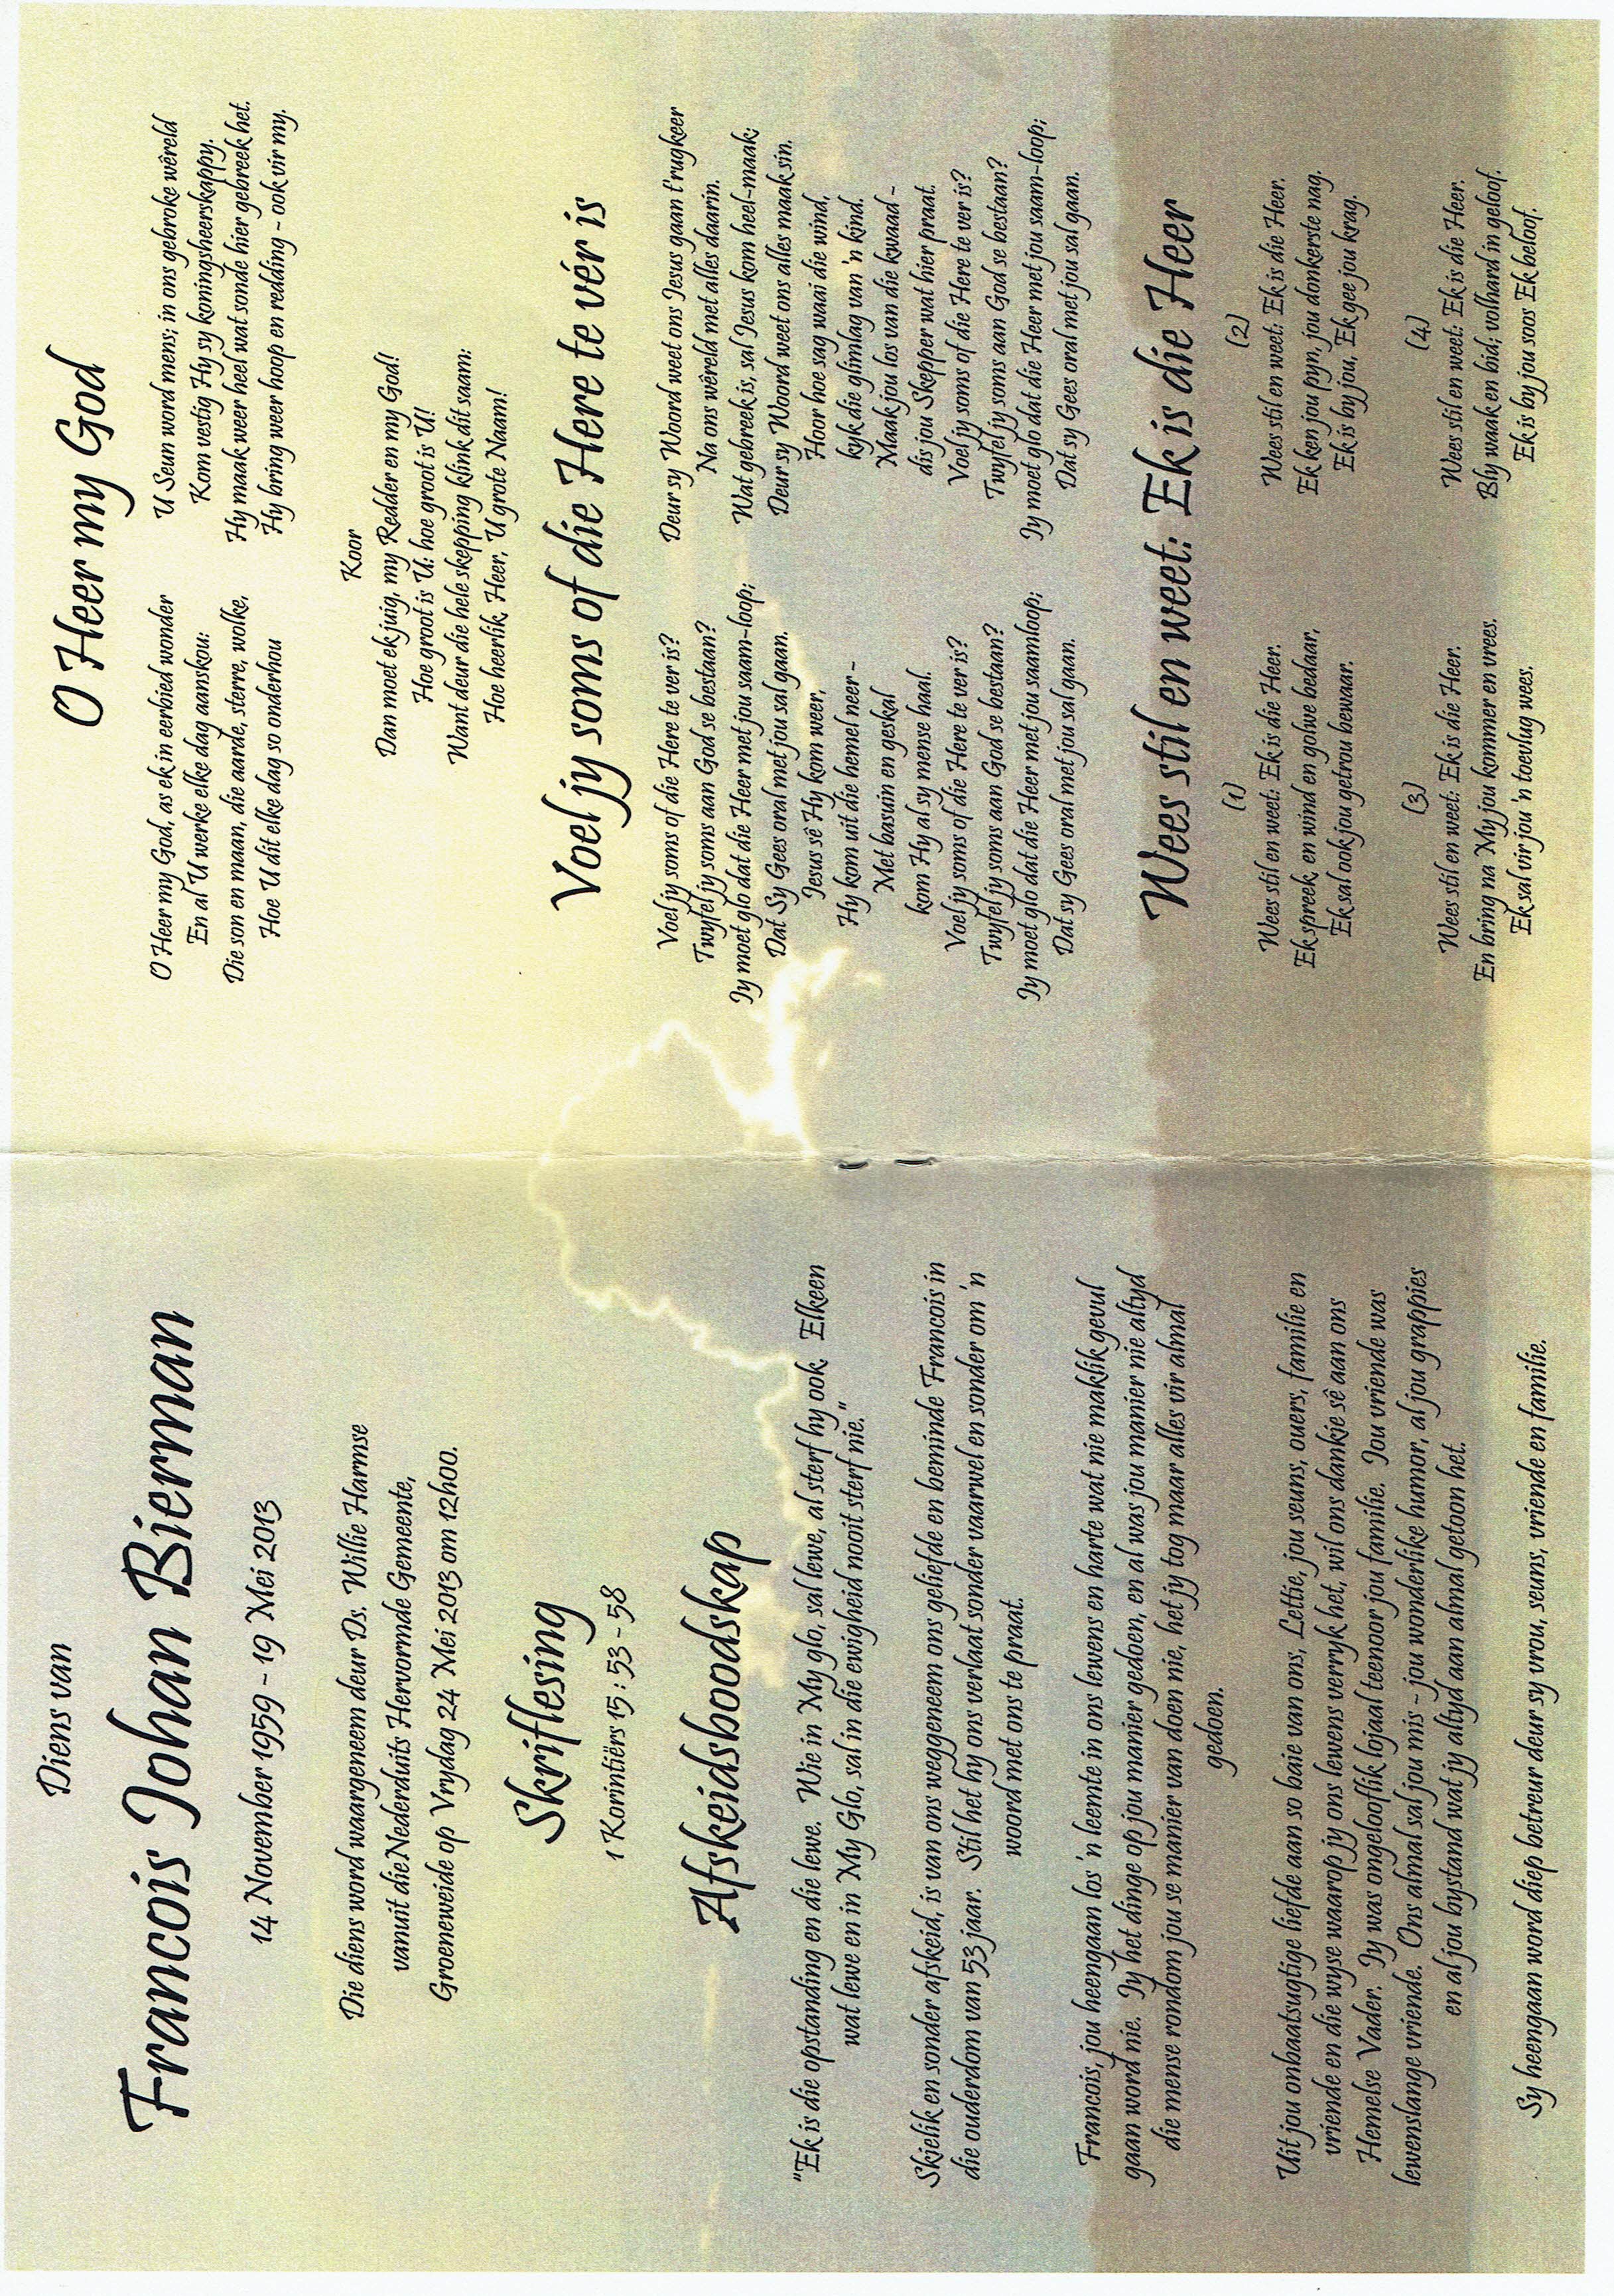 Diens van
Francois Johan Bierman
14 November 1959 - 19 Mei 2013
Die diens word waargeneem deur Ds. Willie Harmse
vanuit die Nederduits Hervormde Gemeente,
Groeneweide op Vrydag 24 Mei 2013 om 12h00.
Skriflesing
1 Korintiërs 15 : 53 - 58
Afskeidsboodskap
"Ek is die opstanding en die lewe. Wie in My glo, sal lewe, al sterf hy ook. Elkeen
wat lewe en in My Glo, sal in die ewigheid nooit sterf nie."
Skielik en sonder afskeid, is van ons weggeneem ons geliefde en beminde Francois in
die ouderdom van 53 jaar. Stil het hy ons verlaat sonder vaarwel en sonder om 'n
woord met ons te praat.
Francois, jou heengaan los 'n leemte in ons lewens en harte wat nie maklik gevul
gaan word nie. Jy het dinge op jou manier gedoen, en al was jou manier nie altyd
die mense rondom jou se manier van doen nie, het jy tog maar alles vir almal
gedoen.
Uit jou onbaatsugtige liefde aan so baie van ons, Lettie, jou seuns, ouers, familie en
vriende en die wyse waarop jy ons lewens verryk het, wil ons dankie sê aan ons
Hemelse Vader. Jy was ongelooflik lojaal teenoor jou familie. Jou vriende was
lewenslange vriende. Ons almal sal jou mis - jou wonderlike humor, al jou grappies
en al jou bystand wat jy altyd aan almal getoon het.
Sy heengaan word diep betreur deur sy vrou, seuns, vriende en familie.
O Heer my God
O Heer my God, as ek in eerbied wonder
En al U werke elke dag aanskou:
Die son en maan, die aarde, sterre, wolke,
Hoe U dit elke dag so onderhou
U Seun word mens; in ons gebroke wêreld
Kom vestig Hy sy koningsheerskappy.
Hy maak weer heel wat sonde hier gebreek het.
Hy bring weer hoop en redding - ook vir my.
Koor
Dan moet ek juig, my Redder en my God!
Hoe groot is U: hoe groot is U!
Want deur die hele skepping klink dit saam:
Hoe heerlik, Heer, U grote Naam!
Voel jy soms of die Here te vér is
Voel jy soms of die Here te ver is?
Twyfel jy soms aan God se bestaan?
Jy moet glo dat die Heer met jou saam-loop;
Dat Sy Gees oral met jou sal gaan.
Jesus sê Hy kom weer,
Hy kom uit die hemel neer -
Met basuin en geskal
kom Hy al sy mense haal.
Voel jy soms of die Here te ver is?
Twyfel jy soms aan God se bestaan?
Jy moet glo dat die Heer met jou saamloop;
Dat sy Gees oral met jou sal gaan.
Deur sy Woord weet ons Jesus gaan t'rugkeer
Na ons wêreld met alles daarin.
Wat gebreek is, sal Jesus kom heel-maak;
Deur sy Woord weet ons alles maak sin.
Hoor hoe sag waai die wind,
kyk die glimlag van 'n kind.
Maak jou los van die kwaad -
dis jou Skepper wat hier praat.
Voel jy soms of die Here te ver is?
Twyfel jy soms aan God se bestaan?
Jy moet glo dat die Heer met jou saam-loop;
Dat sy Gees oral met jou sal gaan.
Wees stil en weet: Ek is die Heer
(1)
Wees stil en weet: Ek is die Heer.
Ek spreek, en wind en golwe bedaar,
Ek sal ook jou getrou bewaar.
(2)
Wees stil en weet: Ek is die Heer.
Ek ken jou pyn, jou donkerste nag.
Ek is by jou, Ek gee jou krag.
(3)
Wees stil en weet: Ek is die Heer.
En bring na My jou kommer en vrees.
Ek sal vir jou 'n toevlug wees.
(4)
Wees stil en weet: Ek is die Heer.
Bly waak en bid; volhard in geloof.
Ek is by jou soos Ek beloof.